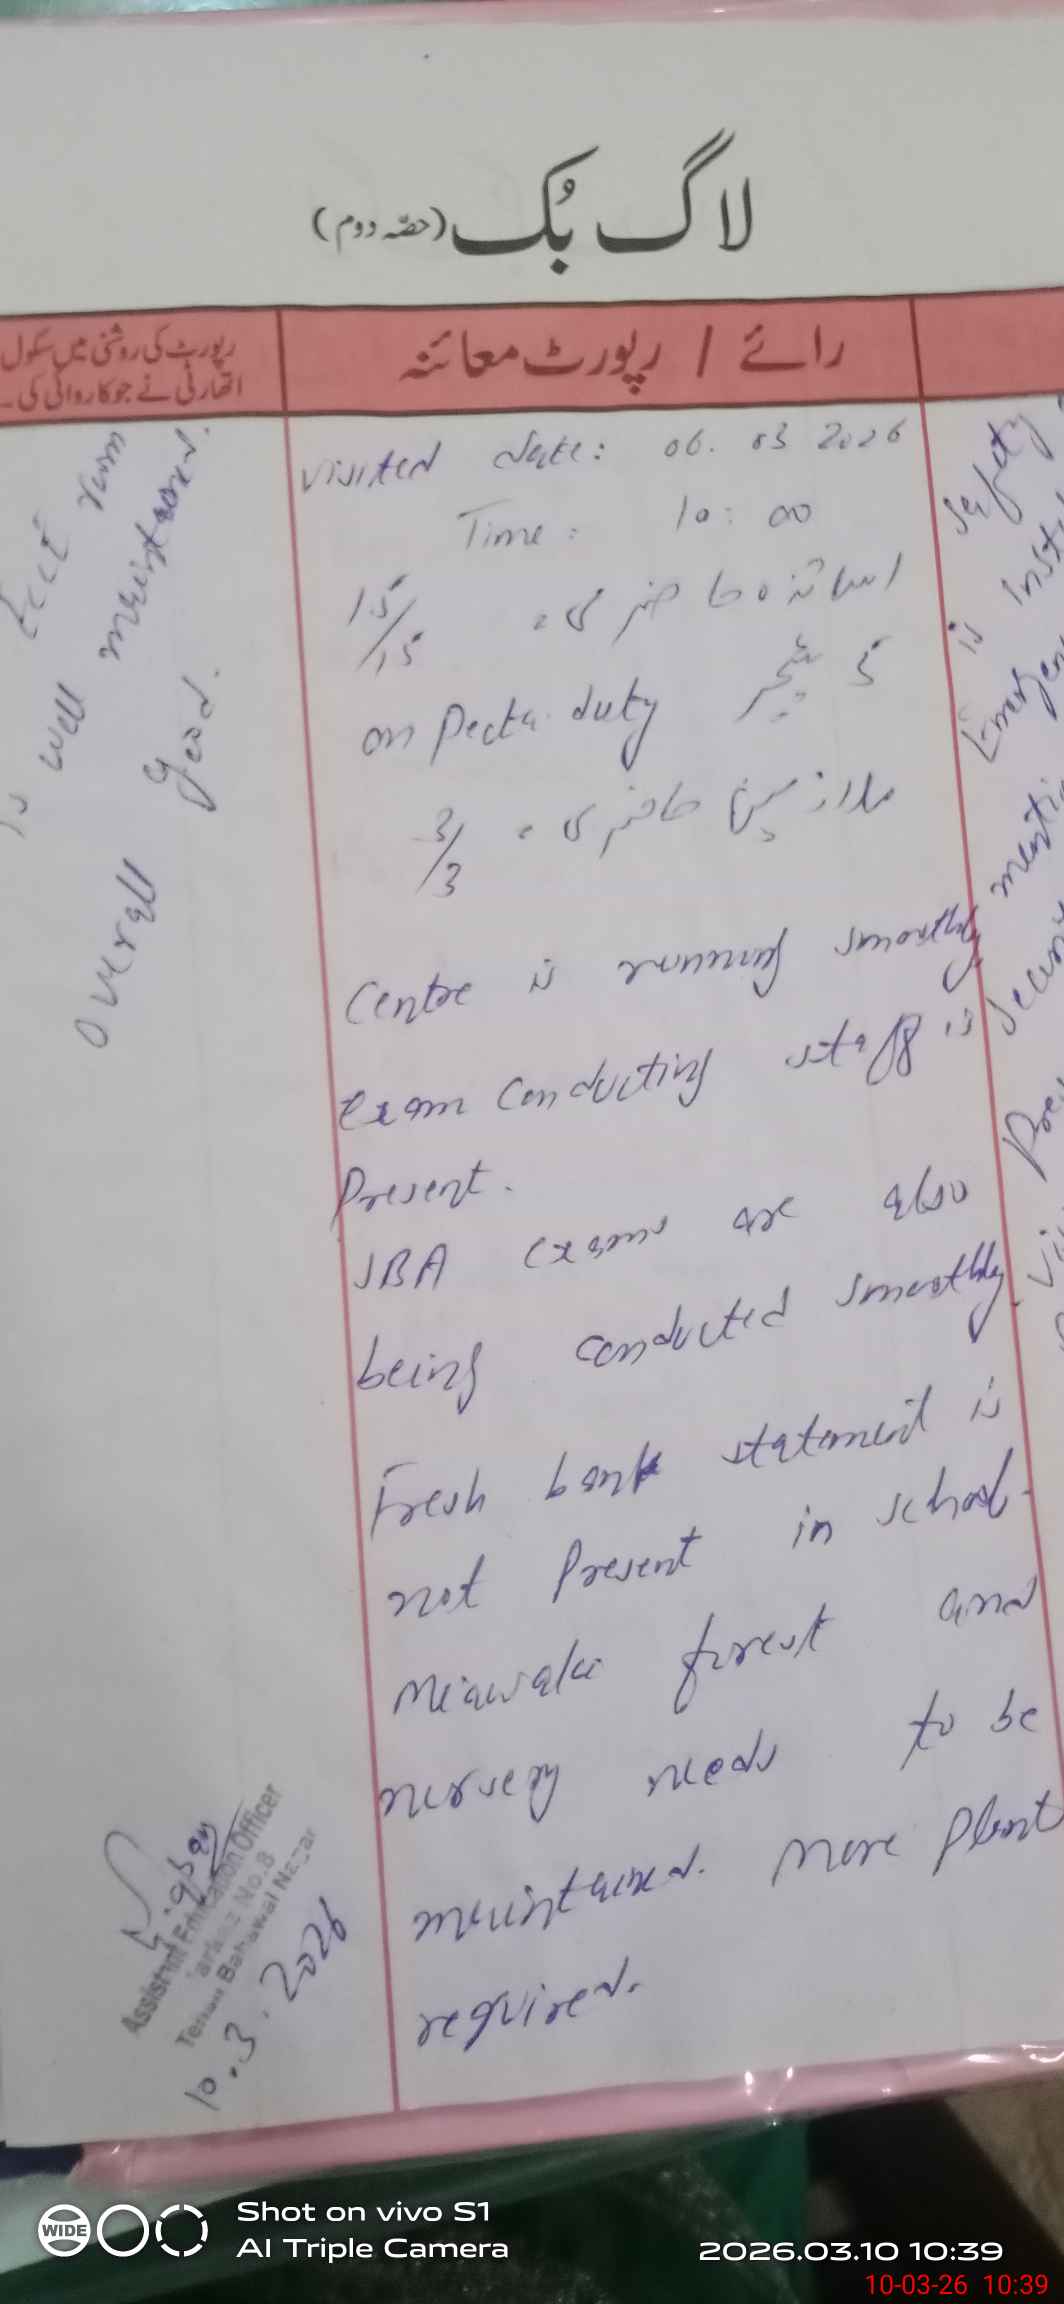 لاگ بُک (حصّہ دوم)
رائے / رپورٹ معائنہ
رپورٹ کی روشنی میں سکول
اتھارٹی نے جو کاروائی کی۔
visited date: 06. 03 2026
Time: 10:00
اساتذہ حاضری = 15/15
5 ٹیچر on Pecta duty
ملازمین حاضری = 3/3
Centre is running smoothly
exam conducting staff is
Present.
SBA exams are also
being conducted smoothly.
Fresh bank statement is
not Present in school.
Miawaki forest and
nursery needs to be
maintained. More Plant
required.
Safety
is
mentio
room
is well maintained.
Overall good.
Assistant Education Officer
Markaz No.8
Tehsil Bahawal Nagar
10.3.2026
WIDE
Shot on vivo S1
AI Triple Camera
2026.03.10 10:39
10-03-26 10:39